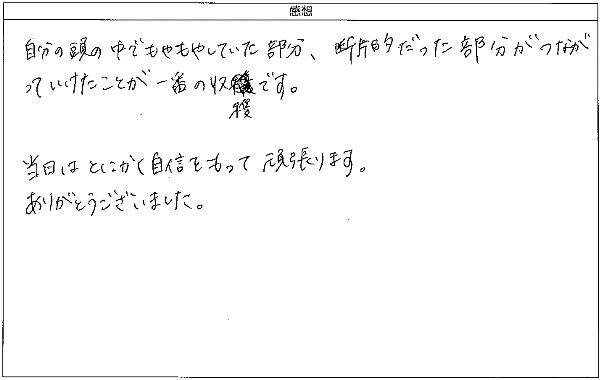 感想
自分の頭の中でもやもやしていた部分、断片的だった部分がつながっ
ていけたことが一番の収穫です。
当日はとにかく自信をもって頑張ります。
ありがとうございました。